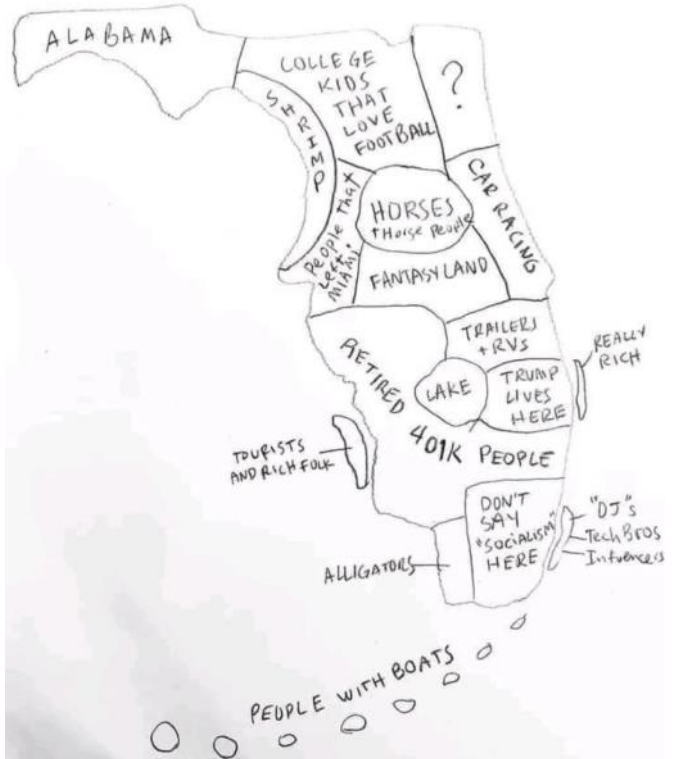 ALABAMA
COLLEGE
KIDS
THAT
LOVE
FOOTBALL
?
SHRIMP
CAR RACING
People That
Left
MIAMI.
HORSES
+ Horse People
FANTASYLAND
TRAILERS
+ RVs
REALLY
RICH
RETIRED
401K PEOPLE
LAKE
TRUMP
LIVES
HERE
TOURISTS
AND RICH FOLK
DON'T
SAY
"SOCIALISM"
HERE
"DJ"s
Tech Bros
Influencers
ALLIGATORS
PEOPLE WITH BOATS